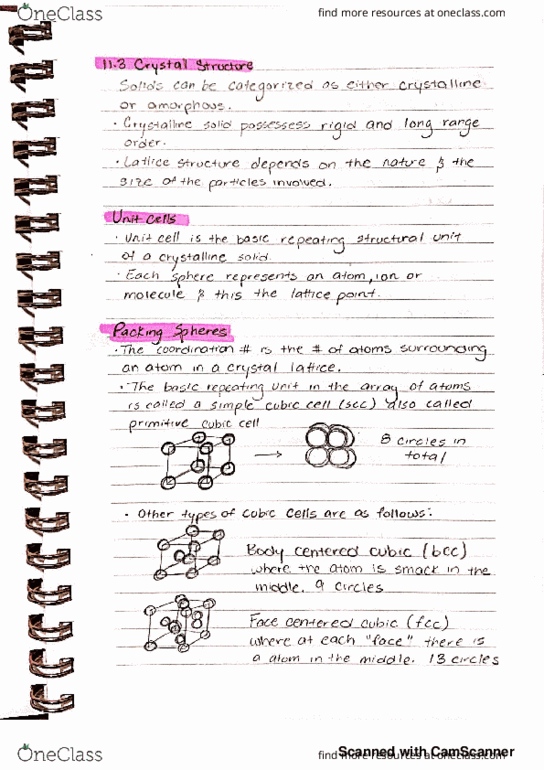 OneClass
find more resources at oneclass.com
11.3 Crystal Structure
Solids can be categorized as either crystalline
or amorphous.
· Crystalline solid possessess rigid and long range
order.
· Lattice structure depends on the nature & the
size of the particles involved.
Unit cells
· Unit cell is the basic repeating structural unit
of a crystalline solid.
· Each sphere represents an atom, ion or
molecule & this the lattice point.
Packing Spheres
· The coordination # is the # of atoms surrounding
an atom in a crystal lattice.
· The basic repeating unit in the array of atoms
is called a simple cubic cell (scc) also called
primitive cubic cell
8 circles in
total
· Other types of cubic cells are as follows:
Body centered cubic (bcc)
where the atom is smack in the
middle. 9 circles
Face centered cubic (fcc)
where at each "face" there is
a atom in the middle. 13 circles
OneClass
find more resources at oneclass.com
Scanned with CamScanner